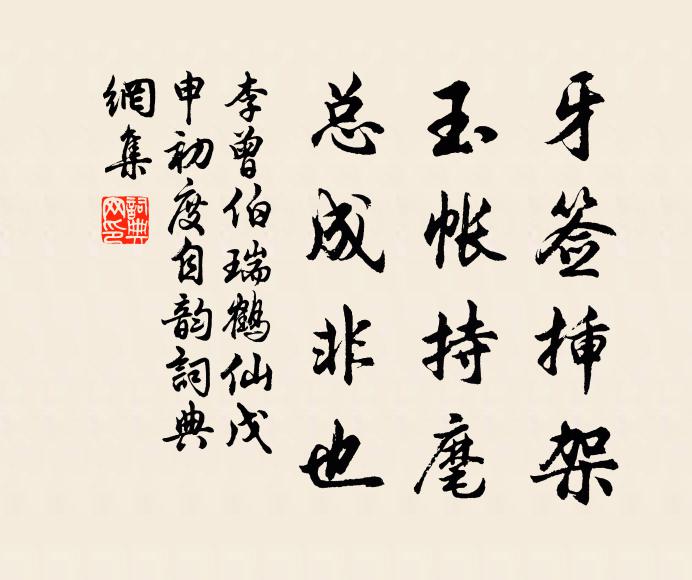 牙签插架
玉帐持麾
总成非也
李曾伯瑞鹤仙戊
申初度自韵詞典
網集
詞典
网印